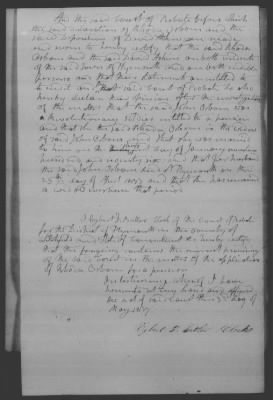 And the said Court of Probate before which
the said declaration of Rhoda Osborn and the
said deposition of David Adkins were made
and sworn to hereby certify that the said Rhoda
Osborn and the said David Adkins are both residents
of the said town of Plymouth and are both credible
persons and that their statement are entitled to
full credit and that said Court of Probate do also
hereby declare their opinion after the investigation
of the matter that the said John Osborn was
a Revolutionary soldier entitled to a pension
and that the said Rhoda Osborn is the widow
of said John Osborn and that she was married
to him on the day of January seventeen
hundred and seventy six and that her husband
the said John Osborn died at Plymouth on the
25th day of Sept and that she has remained
a widow ever since that period
I Clerk of the Court of Probate
for the District of Plymouth in the County of
Litchfield and State of Connecticut do hereby certify
that the foregoing contains the minutes
of the said Court in the matter of the application
of Rhoda Osborn for a pension
In testimony whereof I have
hereunto set my hand and affixed
the seal of said Court this day of
May 1837
Clerk